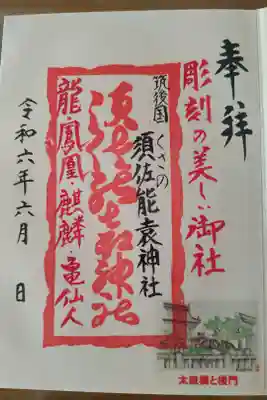 奉拝
彫刻の美しい御社
筑後国
くさの
須佐能袁神社
龍・鳳凰・麒麟・亀仙人
令和六年六月 日
太鼓橋と後門